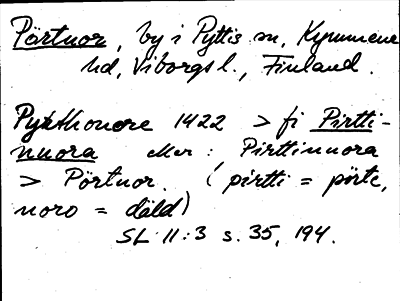 Pörtnor, by i Pyttis sn, Kymmene
hd, Viborgs l., Finland.
Pyrtthonore 1422 > fi Pirtti-
nuora eller: Pirttinuora
> Pörtnor. (pirtti = pörte,
noro = däld)
SL 11:3 s. 35, 194.